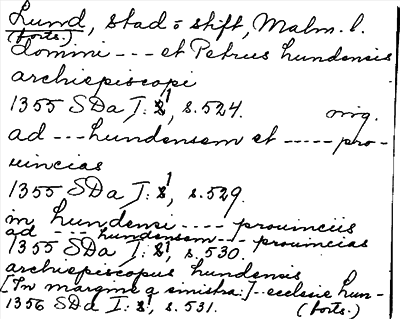 Lund, stad o stift, Malm. l.
(forts.)
domini --- et Petrus lundensis
archiepiscopi
1355 SDa I: 1, s. 524. orig.
ad --- lundensem et ----- pro-
uincias
1355 SDa I: 1, s. 529.
in lundensi ---- prouinciis
ad ---- lundensem --- provincias
1355 SDa I: 1, s. 530.
archiepiscopus lundensis
[In margine a sinistra:] -- ecclesie lun-
1356 SDa I: 1, s. 531. (forts.)